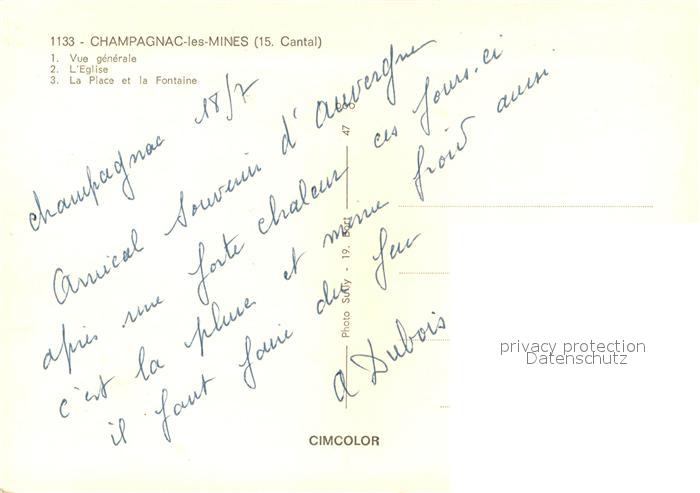 1133 - CHAMPAGNAC-les-MINES (15. Cantal)
1. Vue générale
2. L'Eglise
3. La Place et la Fontaine
Champagnac 18/7
Amical Souvenir d'Auvergne
après une forte chaleur ces jours-ci
c'est la pluie et même froid aussi
il faut faire du feu
A Dubois
Photo Sully - 19. Bort
47
privacy protection
Datenschutz
CIMCOLOR